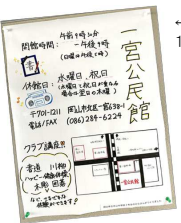 一宮公民館
開館時間: 午前9時30分
～午後9時
(日曜は午後5時)
書
休館日: 水曜日、祝日
(水曜日と祝日が重なる
場合は翌日の木曜)
〒701-1211 岡山市北区一宮638-1
電話/FAX (086)284-6224
クラブ講座!!
書道 川柳
ハッピー健康体操
木彫 囲碁
など、さまざまな
体験ができます♪
←
1